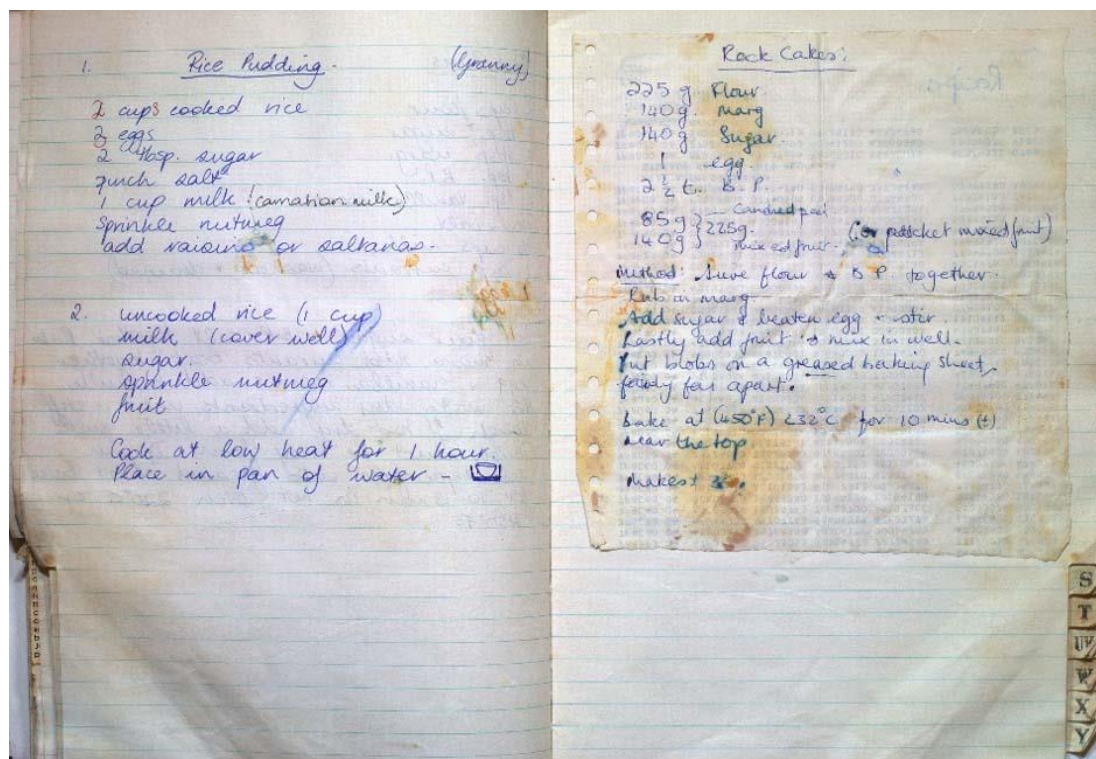 1. Rice Pudding. (Granny)
2 cups cooked rice
eggs
2 tbsp. sugar
pinch salt
1 cup milk (carnation milk)
Sprinkle nutmeg
add raisins or saltanas.
2. uncooked rice (1 cup)
milk (cover well)
sugar
sprinkle nutmeg
fruit
Cook at low heat for 1 hour.
Place in pan of water -
Rock Cakes:
225 g Flour
140 g. Marg
140 g Sugar
1 egg.
2 1/2 t. B. P.
85g } Candied peel
140g } 225g. mixed fruit. (or packet mixed fruit)
Method: Sieve flour & B P together.
Rub in marg
Add sugar & beaten egg + stir.
Lastly add fruit & mix in well.
Put blobs on a greased baking sheet,
fairly far apart.
Bake at (450°F) 232°C for 10 mins (+)
near the top
Makes ±
S
T
UV
W
X
Y